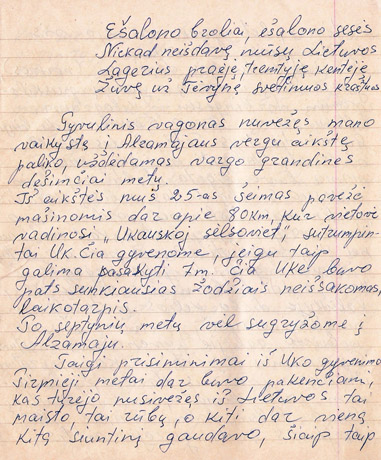 Ešalono broliai, ešalono sesės
Nickad neišdavę mūsų Lietuvos
Lagerius praėję, tremtyję kentėję
Žuvę už Tėvynę svetinuos kraštuos
Gyvulinis vagonas nuvežęs mano
vaikystę į Alzamajaus vergų aikštę
paliko, uždėdamas vargo grandinės
dešimčiai metų.
Iš aikštės mus 25-as šeimas pavežė
mašinomis dar apie 80km, kur vietovė
vadinosi „Ukauskoj selsoviet", sutumpin-
tai Uk. Čia gyvenome, jeigu taip
galima pasakyti 7m. čia Uke buvo
pats sunkiausias žodžiais neišsakomas,
laikotarpis.
Po septynių metų vėl sugryžome į
Alzamajų.
Taigi prisiminimai iš Uko gyvenimo
Pirmieji metai dar buvo pakenčiami,
kas turėjo nusivežęs iš Lietuvos tai
maisto, tai rūbų, o kiti dar vieną
kitą siuntinį gaudavo, šiaip taip